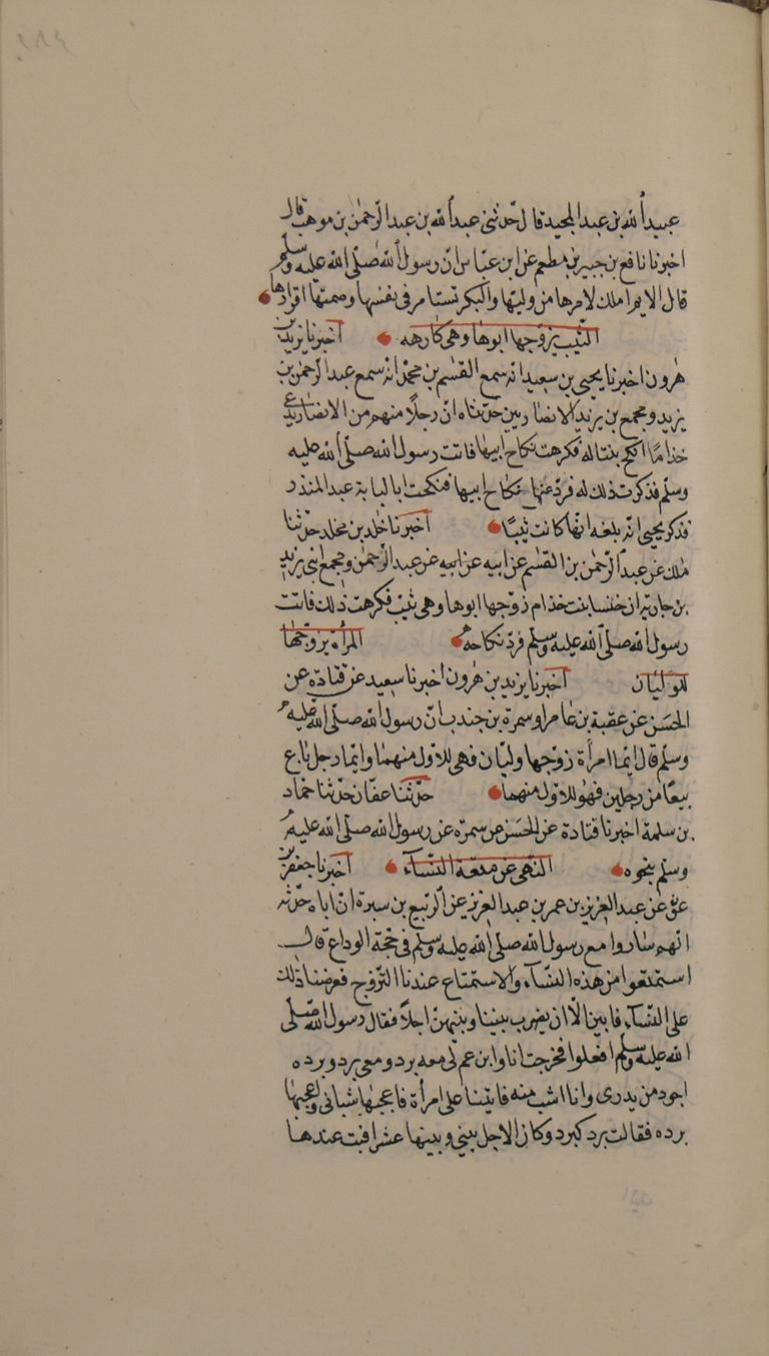 عبيد الله بن عبد المجيد قال حدثنى عبد الله بن عبد الرحمن بن موهب قال
اخبرنا نافع بن جبير بن مطعم عن ابن عباس ان رسول الله صلى الله عليه وسلم
قال الايم املك لامرها من وليتها والبكر تستامر فى نفسها وصمتها اقرارها
الثيب يزوجها ابوها وهى كارهه اخبرنا يزيد بن
هرون اخبرنا يحيى بن سعيد انه سمع القسم بن محمد انه سمع عبد الرحمن بن
يزيد ومجمع بن يزيد الانصاريين حدثاه ان رجلا منهم من الانصار يدعى
خذاما انكح بنتا له فكرهت نكاح ابيها فاتت رسول الله صلى الله عليه
وسلم فذكرت ذلك له فرد عنها نكاح ابيها فنكحت ابا لبابة عبد المنذر
فذكر يحيى انه بلغه انها كانت ثيبا اخبرنا خلد بن مخلد حدثنا
ملك عن عبد الرحمن بن القسم عن ابيه عن ابيه عن عبد الرحمن ومجمع ابنى يزيد
بن جارية ان خنسا بنت خذام زوجها ابوها وهى ثيب فكرهت ذلك فاتت
رسول الله صلى الله عليه وسلم فرد نكاحه المرأة يزوجها
الوليان اخبرنا يزيد بن هرون اخبرنا سعيد عن قتادة عن
الحسن عن عقبة بن عامر او سمرة بن جندب ان رسول الله صلى الله عليه
وسلم قال ايما امرأة زوجها وليان فهى للاول منهما وايما رجل باع
بيعا من رجلين فهو للاول منهما حدثنا عفان حدثنا حماد
بن سلمة اخبرنا قتادة عن الحسن عن سمرة عن رسول الله صلى الله عليه
وسلم بنحوه النهى عن متعة النسآء اخبرنا جعفر بن
عون عن عبد العزيز بن عمر بن عبد العزيز عن الربيع بن سبرة ان اباه حدثه
انهم ساروا مع رسول الله صلى الله عليه وسلم فى حجة الوداع قال
استمتعوا من هذه النسآء والاستمتاع عندنا التزوج فعرضنا ذلك
على النسآء فابين الا ان يضرب بيننا وبينهن اجلا فقال رسول الله صلى
الله عليه وسلم افعلوا فخرجت انا وابن عم لى معه برد ومعى برد وبرده
اجود من بردى وانا اشب منه فاتينا على امرأة فاعجبها شبابى واعجبها
برده فقالت برد كبرد وكان الاجل بينى وبينها عشرا فبت عندها